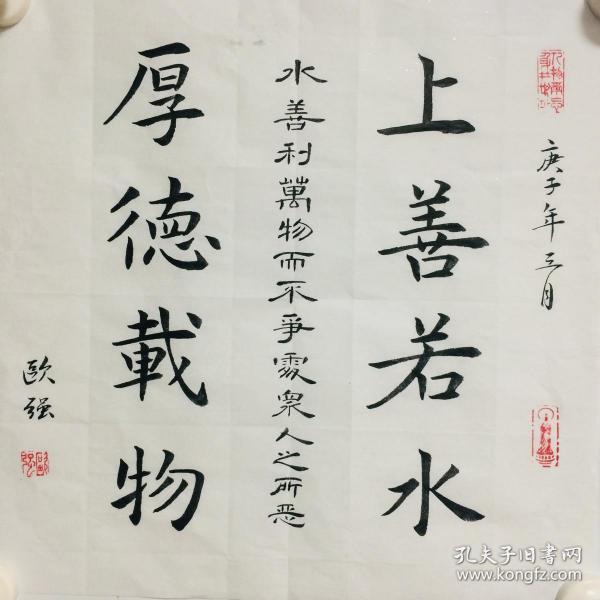 庚子年三月
上善若水
水善利萬物而不爭處衆人之所恶
厚德載物
歐强
孔夫子旧書网
www.kongfz.com